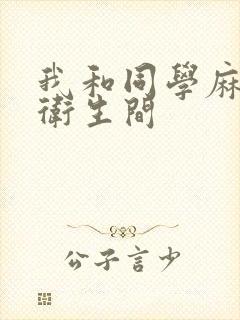 我和同學麻
衛生間
公子言少